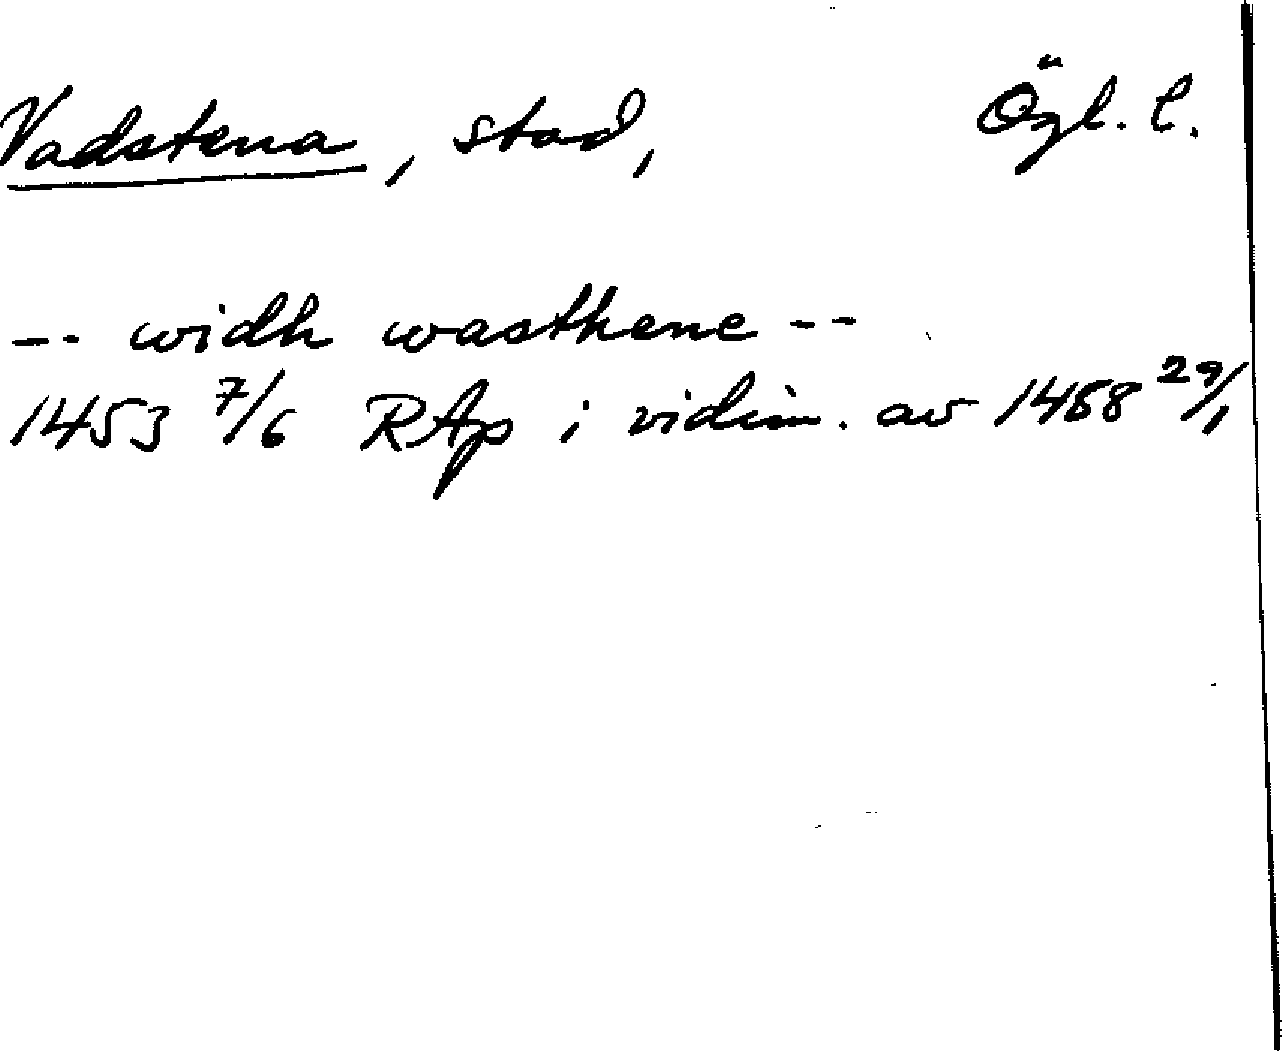 Vadstena, stad, Ögl. l.
-- widh wasthene --
1453 7/6 RAp i vidim. av 1458 29/1